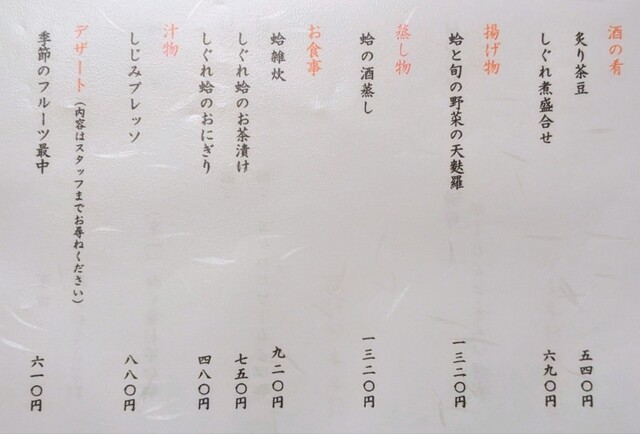 酒の肴
炙り茶豆 五四〇円
しぐれ煮盛合せ 六九〇円
揚げ物
蛤と旬の野菜の天麩羅 一三二〇円
蒸し物
蛤の酒蒸し 一三二〇円
お食事
蛤雑炊 九二〇円
しぐれ蛤のお茶漬け 七五〇円
しぐれ蛤のおにぎり 四八〇円
汁物
しじみブレッソ 八八〇円
デザート（内容はスタッフまでお尋ねください）
季節のフルーツ最中 六一〇円